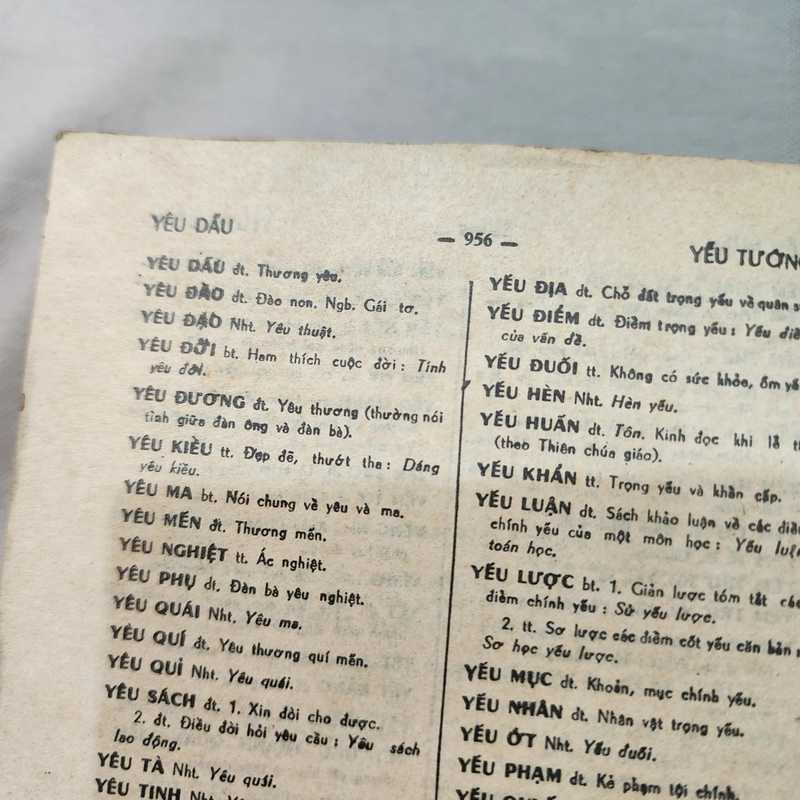 YÊU DẤU
— 956 —
YẾU TƯỚNG
YÊU DẤU đt. Thương yêu.
YÊU ĐÀO dt. Đào non. Ngb. Gái tơ.
YÊU ĐẠO Nht. Yêu thuật.
YÊU ĐỜI bt. Ham thích cuộc đời : Tính
yêu đời.
YÊU ĐƯƠNG đt. Yêu thương (thường nói
tình giữa đàn ông và đàn bà).
YÊU KIỀU tt. Đẹp đẽ, thướt tha : Dáng
yêu kiều.
YÊU MA bt. Nói chung về yêu và ma.
YÊU MẾN đt. Thương mến.
YÊU NGHIỆT tt. Ác nghiệt.
YÊU PHỤ dt. Đàn bà yêu nghiệt.
YÊU QUÁI Nht. Yêu ma.
YÊU QUÍ đt. Yêu thương quí mến.
YÊU QUỈ Nht. Yêu quái.
YÊU SÁCH đt. 1. Xin đòi cho được.
2. dt. Điều đòi hỏi yêu cầu : Yêu sách
lao động.
YÊU TÀ Nht. Yêu quái.
YÊU TINH Nht.
YẾU ĐỊA dt. Chỗ đất trọng yếu về quân
YẾU ĐIỂM dt. Điểm trọng yếu : Yếu
của vấn đề.
YẾU ĐUỐI tt. Không có sức khỏe, ốm
YẾU HÈN Nht. Hèn yếu.
YẾU HUẤN dt. Tôn. Kinh đọc khi lễ
(theo Thiên chúa giáo).
YẾU KHẨN tt. Trọng yếu và khẩn cấp.
YẾU LUẬN dt. Sách khảo luận về các
chính yếu của một môn học : Yếu
toán học.
YẾU LƯỢC bt. 1. Giản lược tóm tắt
điểm chính yếu : Sử yếu lược.
2. tt. Sơ lược các điểm cốt yếu căn bản
Sơ học yếu lược.
YẾU MỤC dt. Khoản, mục chính yếu.
YẾU NHÂN dt. Nhân vật trọng yếu.
YẾU ỚT Nht. Yếu đuối.
YẾU PHẠM dt. Kẻ phạm tội chính.
YẾU